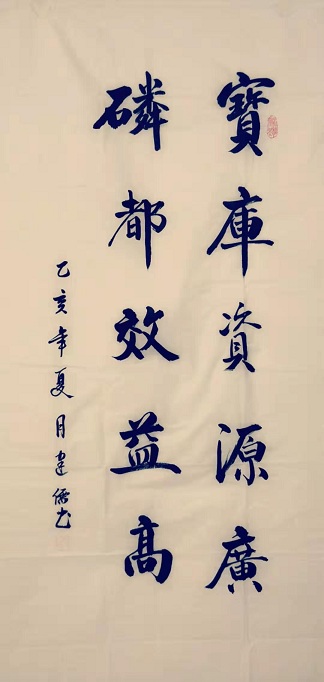 寶庫資源廣
磷都效益高
乙亥年夏月建儒书